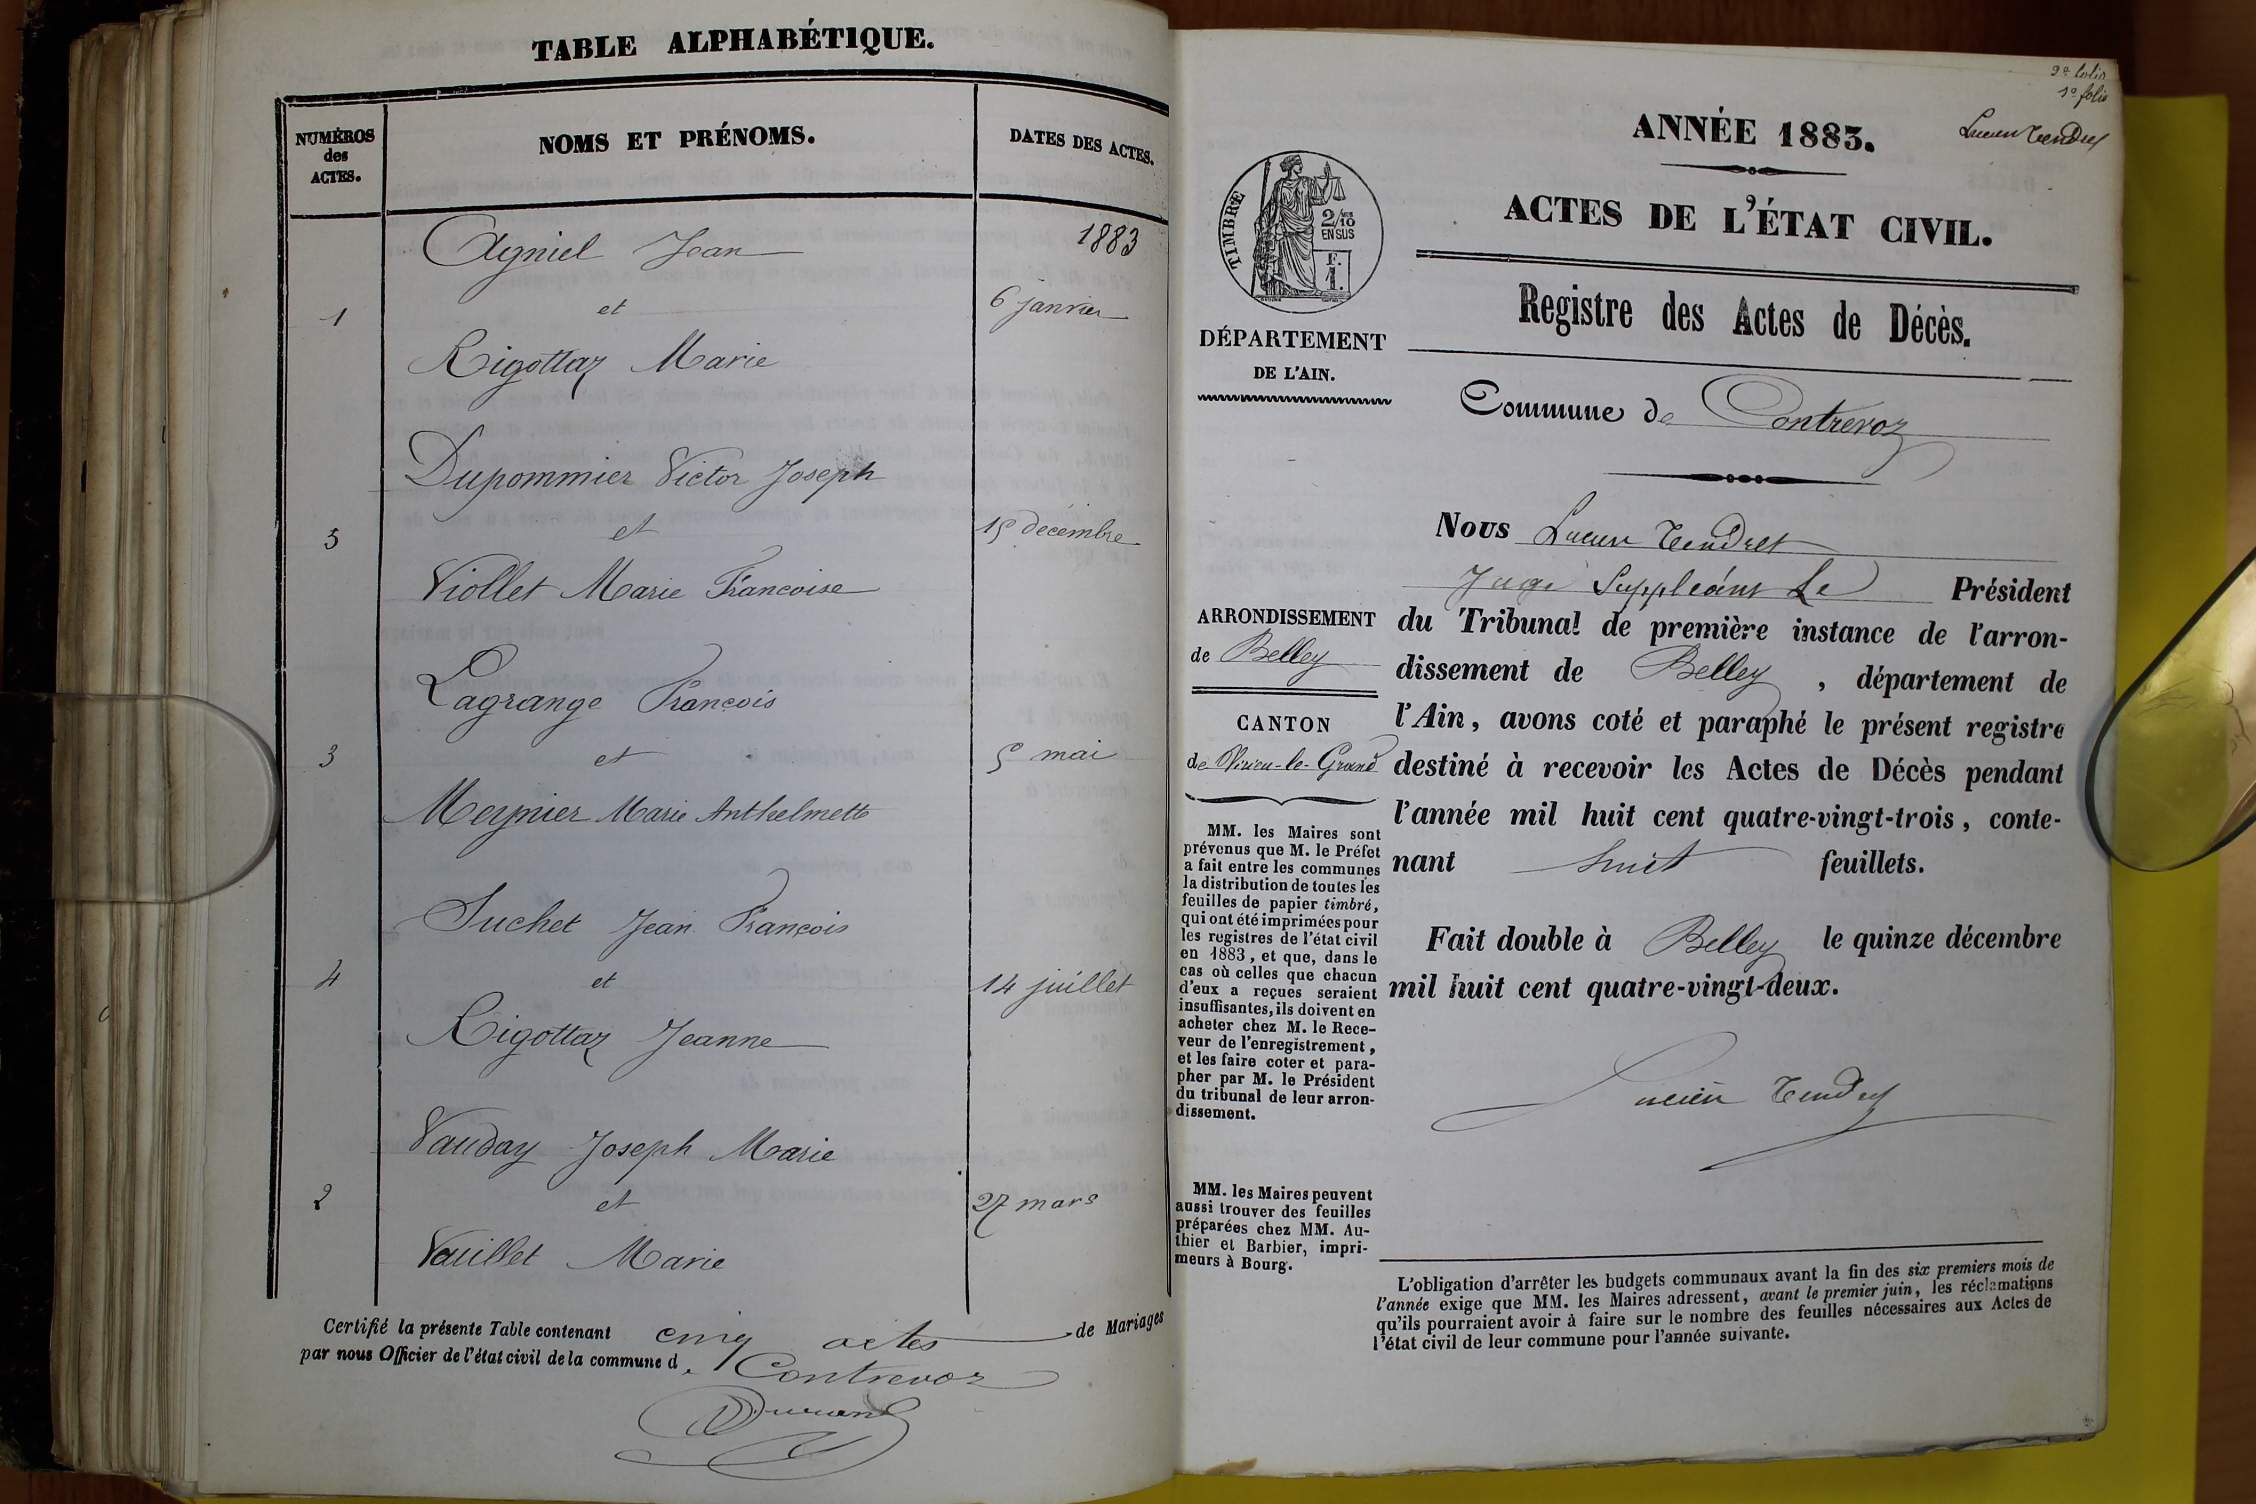 TABLE ALPHABÉTIQUE.
NUMÉROS
des
ACTES.
NOMS ET PRÉNOMS.
DATES DES ACTES.
Agniel Jean
1883
1
et
6 janvier
Rigottaz Marie
Dupommier Victor Joseph
5
et
15 décembre
Viollet Marie Francoise
Lagrange François
3
et
5 mai
Meynier Marie Anthelmette
Suchet Jean François
4
et
14 juillet
Rigottaz Jeanne
Vauday Joseph Marie
2
et
27 mars
Vuillet Marie
Certifié la présente Table contenant cinq actes de Mariages
par nous Officier de l'état civil de la commune de Contrevoz
Durand
1er folio
Lucien Tendret
ANNÉE 1883.
ACTES DE L'ÉTAT CIVIL.
TIMBRE
2/10
EN SUS
F.
1.
Registre des Actes de Décès.
DÉPARTEMENT
DE L'AIN.
Commune de Contrevoz
Nous Lucien Tendret
Juge Suppléant le Président
du Tribunal de première instance de l'arron-
dissement de Belley, département de
l'Ain, avons coté et paraphé le présent registre
destiné à recevoir les Actes de Décès pendant
l'année mil huit cent quatre-vingt-trois, conte-
nant huit feuillets.
Fait double à Belley le quinze décembre
mil huit cent quatre-vingt-deux.
Lucien Tendret
ARRONDISSEMENT
de Belley
CANTON
de Virieu-le-Grand
MM. les Maires sont
prévenus que M. le Préfet
a fait entre les communes
la distribution de toutes les
feuilles de papier timbré,
qui ont été imprimées pour
les registres de l'état civil
en 1883, et que, dans le
cas où celles que chacun
d'eux a reçues seraient
insuffisantes, ils doivent en
acheter chez M. le Rece-
veur de l'enregistrement,
et les faire coter et para-
pher par M. le Président
du tribunal de leur arron-
dissement.
MM. les Maires peuvent
aussi trouver des feuilles
préparées chez MM. Au-
thier et Barbier, impri-
meurs à Bourg.
L'obligation d'arrêter les budgets communaux avant la fin des six premiers mois de
l'année exige que MM. les Maires adressent, avant le premier juin, les réclamations
qu'ils pourraient avoir à faire sur le nombre des feuilles nécessaires aux Actes de
l'état civil de leur commune pour l'année suivante.